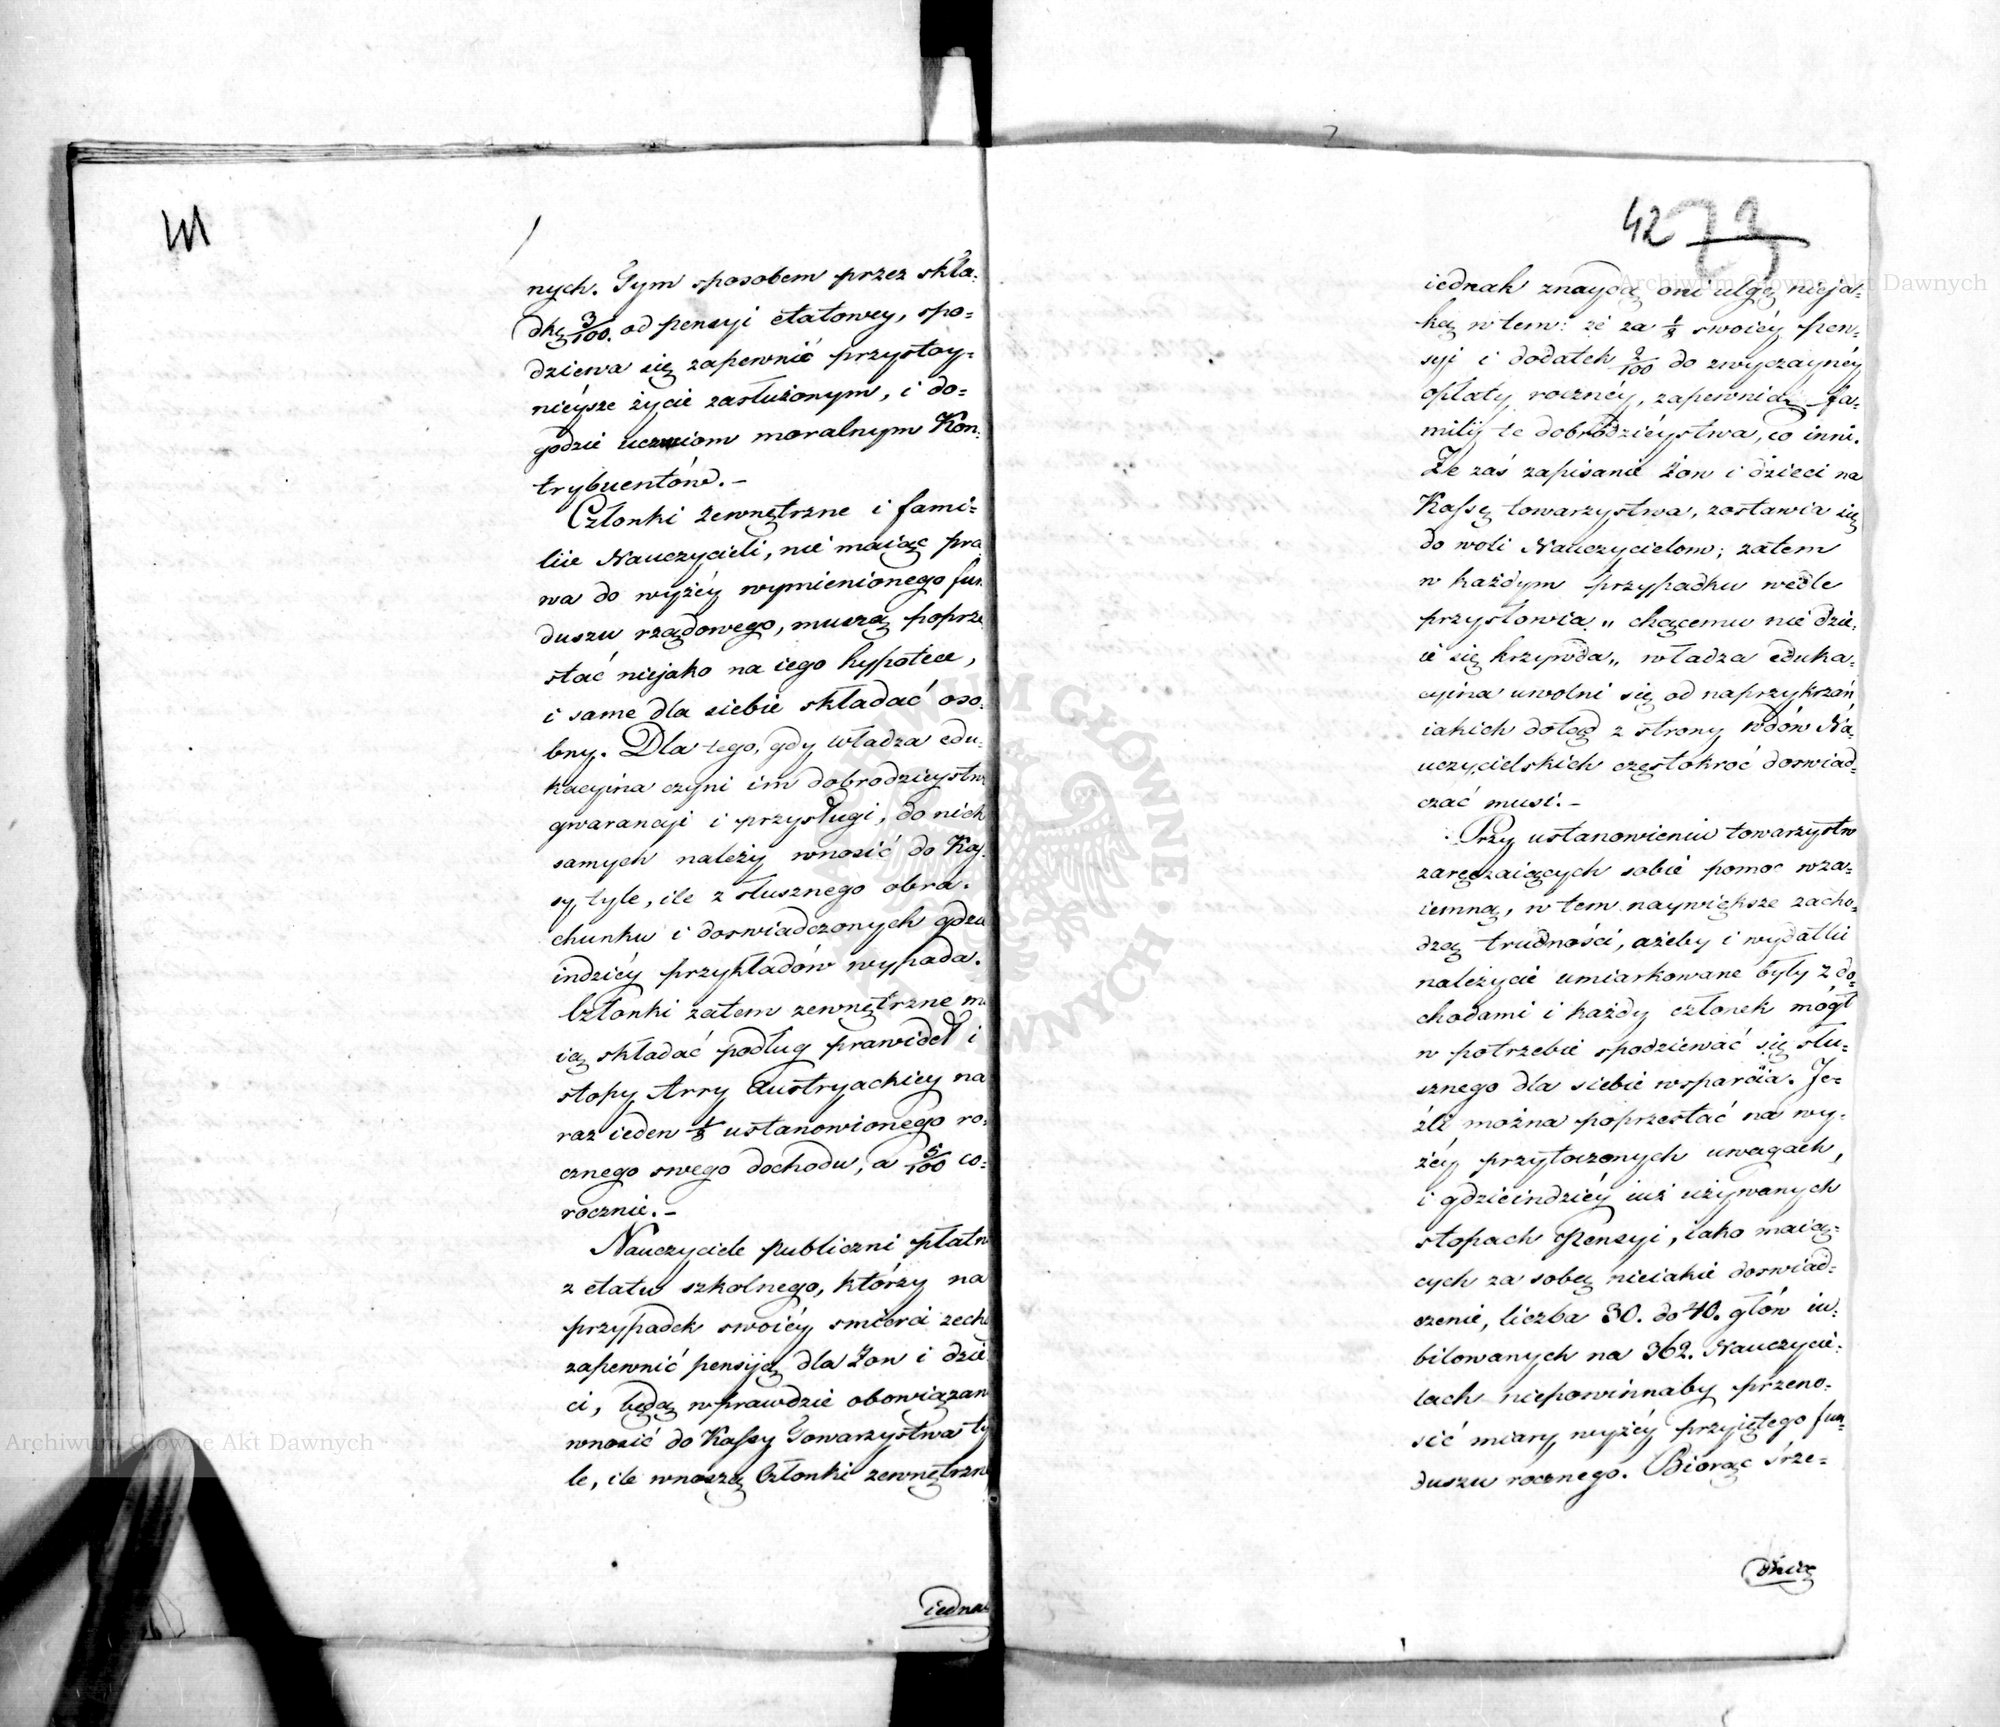 41
nych. Tym sposobem przez skła-
dkę 3/100. od pensyi etatowey, spo-
dziewa się zapewnić przystoy-
nieysze życie zasłużonym, i do-
godzić uczuciom moralnym Kon-
trybuentów.-
Członki zewnętrzne i fami-
liie Nauczycieli, nie maiąc pra
wa do wyżéy wymienionego fun
duszu rządowego, muszą poprze
stać niejako na iego hypotece,
i same dla siebie składać oso-
bny. Dla tego, gdy władza edu-
kacyina czyni im dobrodzieystw
gwarancyi i przysługi, do nich
samych należy wnosić do Kas-
sy tyle, ile z słusznego obra-
chunku i doswiadczonych gdzie
indziéy przykładów wypada.
Członki zatem zewnętrzne ma
ią składać podług prawideł i
stopy Arry Austryackiey na
raz ieden 1/8 ustanowionego ro-
cznego swego dochodu, a 5/100 co-
rocznie.-
Nauczyciele publiczni płatn
z etatu szkolnego, którzy na
przypadek swoiéy smierci zech
zapewnić pensiją dla Żon i dzie
ci, będą wprawdzie obowiązan
wnosić do Kassy Towarzystwa ty
le, ile wnoszą Członki zewnętrzne
iednak
42
iednak znaydą oni ulgę nieja-
ką w tem: że za 1/8 swoiéy pen-
syi i dodatek 2/100 do zwyczaynéy
opłaty rocznéy, zapewnią fa-
milij te dobrodzieystwa, co inni.
Że zaś zapisanie Żon i dzieci na
Kassę towarzystwa, zostawia się
do woli Nauczycielom; zatem
w każdym przypadku wedle
przysłowia „ chcącemu nie dzie-
ie się krzywda„ władza eduka-
cyina uwolni się od naprzykrzań
iakich dotąd z strony wdów Na-
uczycielskich częstokroć doswiad-
czać musi.-
Przy ustanowieniu towarzystw
zaręczaiących sobie pomoc wza-
iemną, w tem naywiększe zacho-
dzą trudności, ażeby i wydatki
należycie umiarkowane były z do-
chodami i każdy członek mógł
w potrzebie spodziewać się słu-
sznego dla siebie wsparcia. Je-
żli można poprzestać na wy-
żéy przytoczonych uwagach,
i gdzieindziéy iuż używanych
stopach Pensyi, iako maią-
cych za sobą nieiakie doswiad-
czenie, liczba 30. do 40. głów iu-
bilowanych na 362. Nauczycie-
lach niepowinnaby przeno-
sić miary wyżéy przyiętego fun-
duszu rocznego. Biorąc śrze-
dnią
Archiwum Główne Akt Dawnych
Archiwum Główne Akt Dawnych
ARCHIWUM GŁÓWNE AKT DAWNYCH